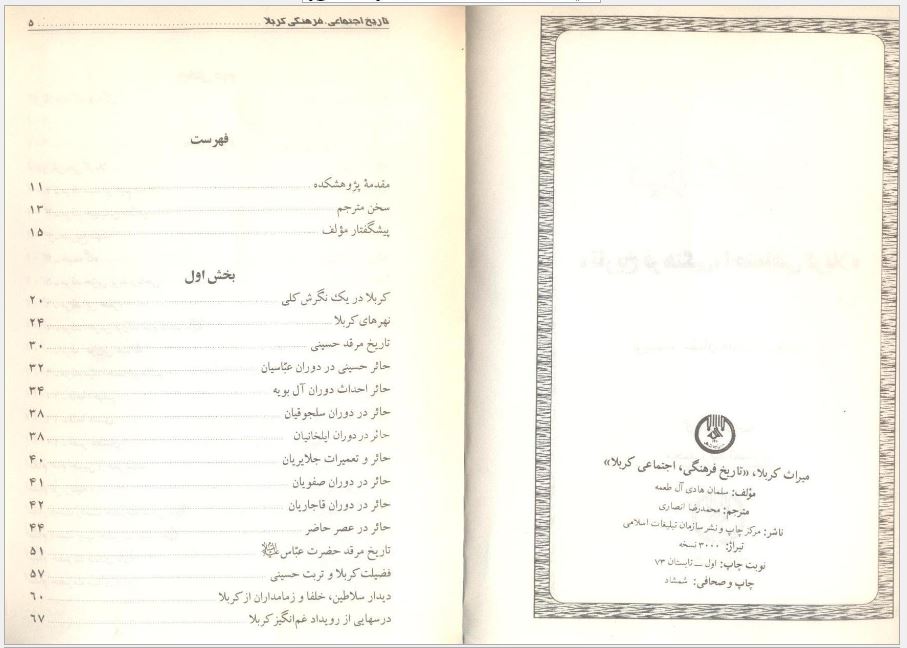 میراث کربلا، «تاریخ فرهنگی، اجتماعی کربلا»
مؤلف: سلمان هادی آل طعمه
مترجم: محمدرضا انصاری
ناشر: مرکز چاپ و نشر سازمان تبلیغات اسلامی
تیراژ: ۳۰۰۰ نسخه
نوبت چاپ: اول ــ تابستان ۷۳
چاپ و صحافی: شمشاد
تاریخ اجتماعی، فرهنگی کربلا ........ ۵
فهرست
مقدمهٔ پژوهشکده ........ ۱۱
سخن مترجم ........ ۱۳
پیشگفتار مؤلف ........ ۱۵
بخش اول
کربلا در یک نگرش کلی ........ ۲۰
نهرهای کربلا ........ ۲۴
تاریخ مرقد حسینی ........ ۳۰
حائر حسینی در دوران عبّاسیان ........ ۳۲
حائر احداث دوران آل بویه ........ ۳۴
حائر در دوران سلجوقیان ........ ۳۸
حائر در دوران ایلخانیان ........ ۳۸
حائر و تعمیرات جلایریان ........ ۴۰
حائر در دوران صفویان ........ ۴۱
حائر در دوران قاجاریان ........ ۴۲
حائر در عصر حاضر ........ ۴۴
تاریخ مرقد حضرت عبّاس ........ ۵۱
فضیلت کربلا و تربت حسینی ........ ۵۷
دیدار سلاطین، خلفا و زمامداران از کربلا ........ ۶۰
درسهایی از رویداد غم‌انگیز کربلا ........ ۶۷